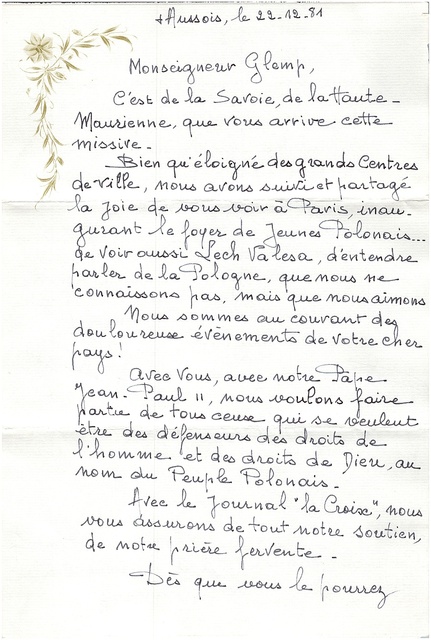 +Aussois, le 22-12-81
Monseigneur Glemp,
C'est de la Savoie, de la Haute-
Maurienne, que vous arrive cette
missive.
Bien qu'éloigné des grands Centres
de Ville, nous avons suivi et partagé
la Joie de vous voir à Paris, inau-
gurant le foyer de Jeunes Polonais...
de voir aussi Lech Valesa, d'entendre
parler de la Pologne, que nous ne
connaissons pas, mais que nous aimons
Nous sommes au courant des
douloureuse évènements de votre cher
pays!
Avec Vous, avec notre Pape
Jean-Paul II, nous voulons faire
partie de tous ceuse qui se veulent
être des défenseurs des droits de
l'homme et des droits de Dieu, au
nom du Peuple Polonais.
Avec le Journal "la Croix", nous
vous assurons de tout notre soutien,
de notre prière fervente.
Dès que vous le pourrez